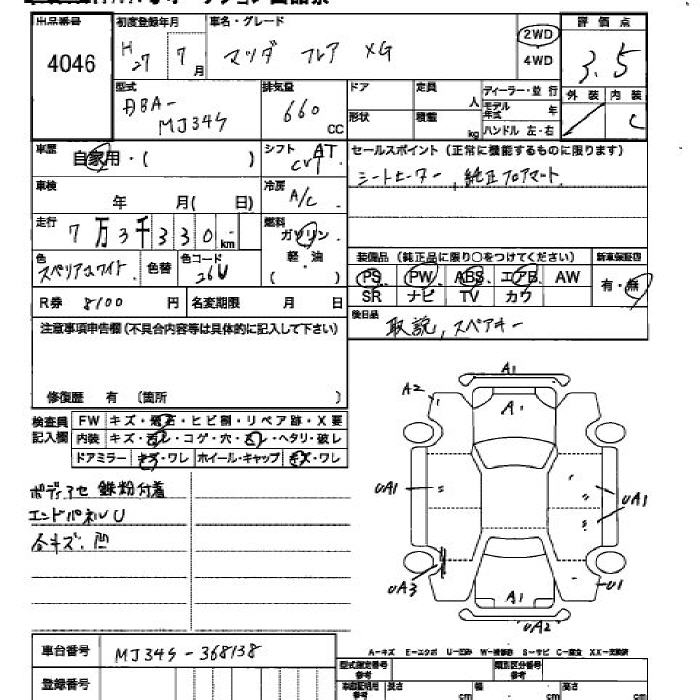 出品番号 4046
初度登録年月 H27 7月
車名・グレード マツダ フレア XG
2WD
4WD
評価点 3.5
外装 内装 C
型式 DBA-MJ34S
排気量 660 CC
ドア 定員 人
形状 積載 kg
ディーラー・並行
モデル年式 年
ハンドル 左・右
車歴 自家用・( )
シフト AT CVT
セールスポイント(正常に機能するものに限ります)
シートヒーター, 純正フロアマット
車検 年 月( 日)
冷房 A/C
走行 7万3千330km
燃料 ガソリン・軽・油 ( )
色 スペリアホワイト 色替 色コード 26U
装備品(純正品に限り○をつけてください) 新車保証書
PS PW ABS エアB AW 有・無
SR ナビ TV カワ
R券 8100円 名変期限 月 日
後日品 取説, スペアキー
注意事項申告欄(不具合内容等は具体的に記入して下さい)
修復歴 有 (箇所 )
検査員記入欄
FW キズ・飛石・ヒビ割・リペア跡・X要
内装 キズ・汚レ・コゲ・穴・スレ・ヘタリ・破レ
ドアミラー キズ・ワレ ホイール・キャップ キズ・ワレ
ボディアセ 鉄粉付着
エンドパネルU
各キズ・凹
A1
A2
A1
UA1
UA1
UA3
U1
A1
UA2
A-キズ E-エクボ U-凹み W-補修跡 S-サビ C-腐食 XX-交換済
車台番号 MJ34S-368138
登録番号
型式指定番号 参考
類別区分番号 参考
車庫証明用 参考 長さ cm 幅 cm 高さ cm